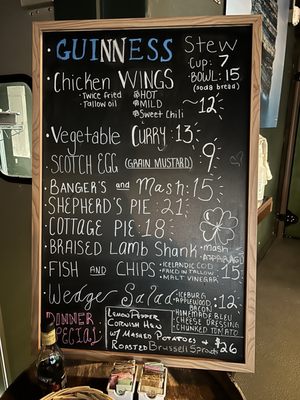 GUINNESS Stew
Cup: 7
Bowl: 15
(soda bread)
Chicken WINGS
• Twice fried
• Tallow oil
HOT
MILD
Sweet Chili
~12~
Vegetable CURRY: 13
SCOTCH EGG (GRAIN MUSTARD) 9
BANGER'S and Mash: 15
SHEPHERD'S PIE: 21
COTTAGE PIE: 18
BRAISED Lamb Shank
• MASH
• ASPARAGUS
FISH AND CHIPS
• ICELANDIC COD
• FRIED IN TALLOW
• MALT VINEGAR
15
Wedge Salad
• ICEBURG
• APPLEWOOD BACON
• HOMEMADE BLEU CHEESE DRESSING
• CHUNKED TOMATO
12
DINNER SPECIAL
LEMON PEPPER
CORNISH HEN
W/ MASHED POTATOES &
ROASTED BRUSSELL SPROUTS
$26